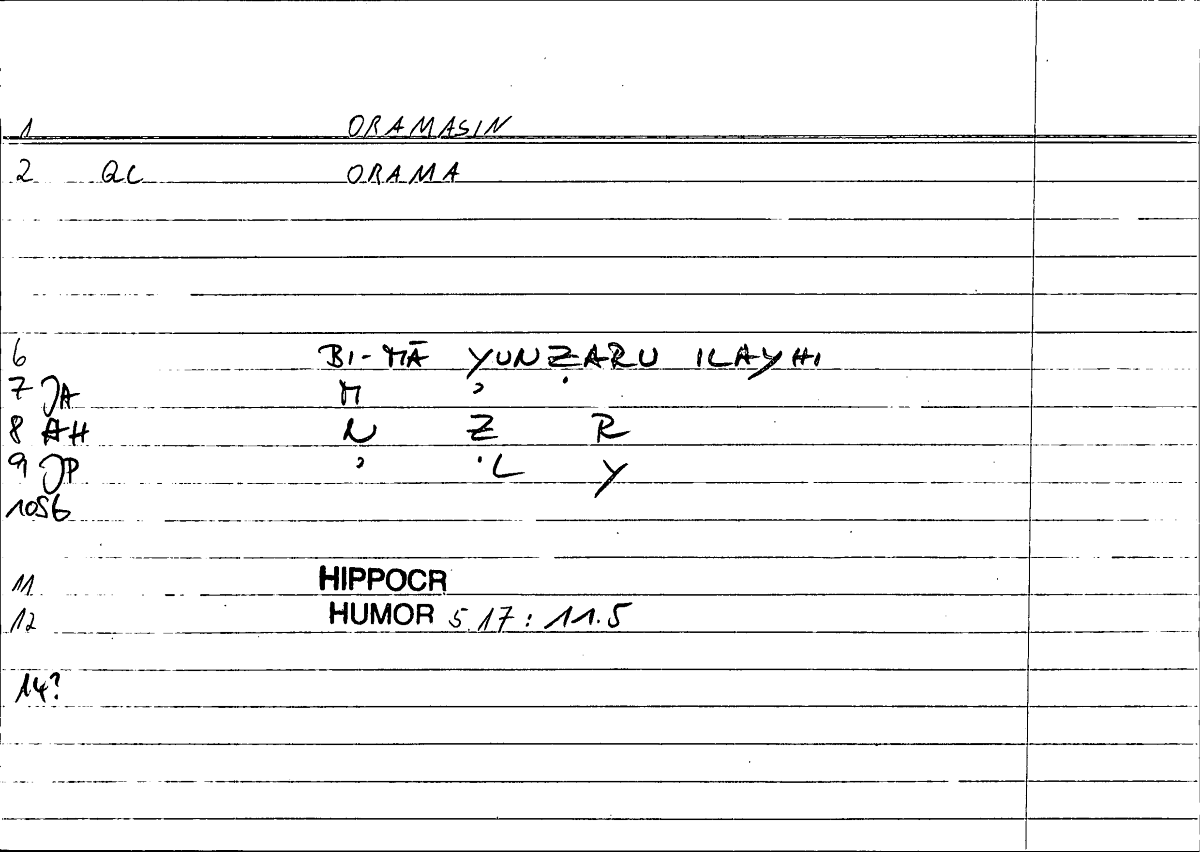 1 ORAMASIN
2 QC ORAMA
6 BI-MĀ YUNẒARU ILAYHI
7 JA M ʾ .
8 AH N Z R
9 JP ʾ .L Y
10SG
11 HIPPOCR
12 HUMOR 5.17: 11.5
14?